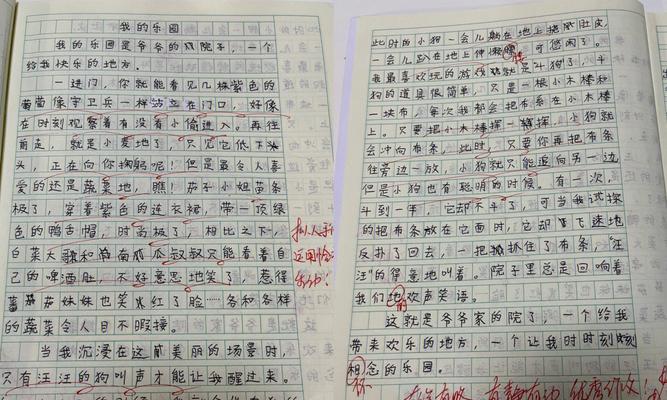 我的乐园
我的乐园是爷爷的院子，一个
给我快乐的地方。
一进门，你就能看见几株紫色的
葡萄像守卫兵一样站立在门口，好像
在时刻观察着有没有小偷进入。再往
前走，就是小麦地了，只见它低下头
头，正在向你鞠躬呢！但是最令人喜
爱的还是蔬菜地，瞧，茄子小姐苗条
极了，穿着紫色的连衣裙，带一顶绿
色的鸭舌帽，时尚极了，相比之下，
白菜大哥和南瓜叔叔只能看着自
己的啤酒肚，不好意思地笑了，惹得
番茄妹妹也笑红了脸……各和各样
的蔬菜令人目不暇接。
当我沉浸在这感美丽的场景时，
只有汪汪的狗叫声才能让我醒过来。
拟人手
运用恰
生动！
此时的小狗一会儿躺在地上挠痒肚皮，
一会儿趴在地上伸懒腰，可悠闲了。
我最喜欢玩的游戏就是斗狗了。斗
狗的道具很简单，只是一根小木棒和
一块布，每次我都会把布系在小木棒
上。只要把小木棒一挥，小狗就
会冲向布条，此时，只要你再把布条
往旁边一放，小狗就只能追向另一边，
但是小狗也有聪明的时候。有一次，
斗到一半，它却不斗了，可当我试探
的把布条放在它面时，它却飞速地
反扑了回去，一把抓住了布条，“汪
汪”的得意地叫着。院子里总是回响着
我们地欢声笑语。
这就是爷爷家的院了，一个给我
带来欢乐的地方，一个让我时时刻刻
相念的乐园。
有静有动